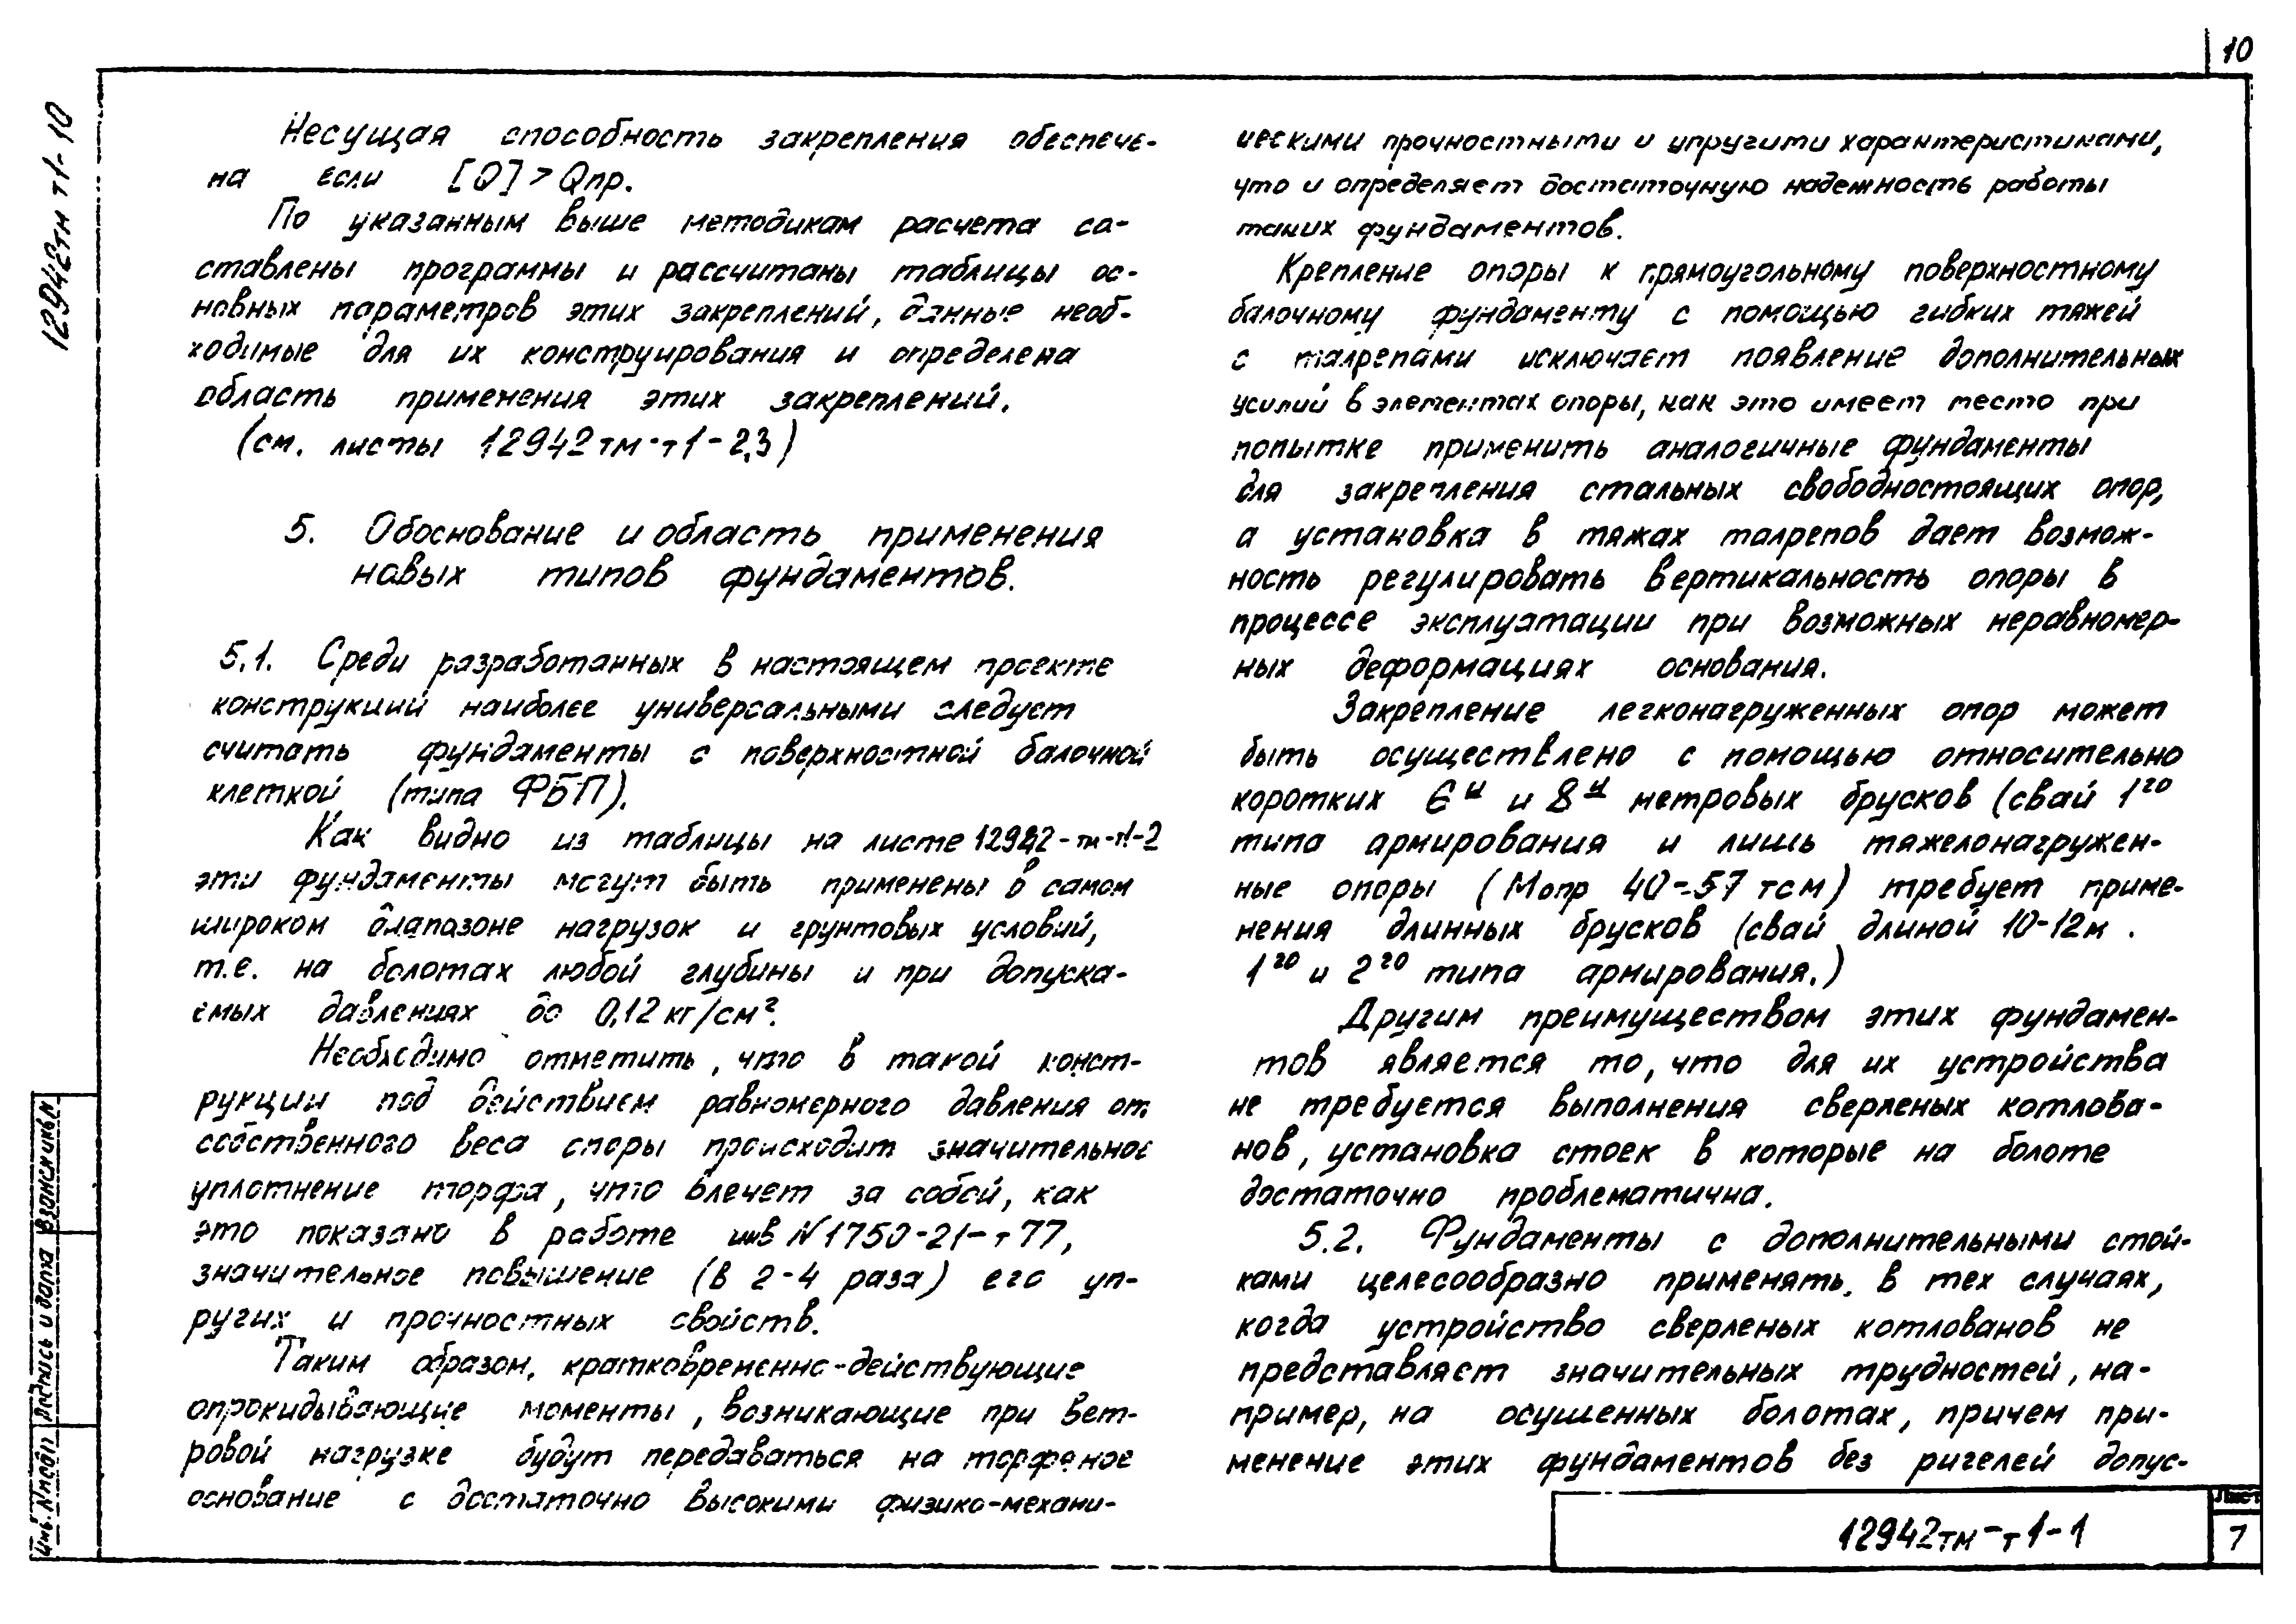 10
12942тм т1-10
Несущая способность закрепления обеспече-
на если [Q] > Qпр.
По указанным выше методикам расчета со-
ставлены программы и рассчитаны таблицы ос-
новных параметров этих закреплений, данные необ-
ходимые для их конструирования и определена
область применения этих закреплений.
(см. листы 12942тм-т1-2,3)
5. Обоснование и область применения
новых типов фундаментов.
5.1. Среди разработанных в настоящем проекте
конструкций наиболее универсальными следует
считать фундаменты с поверхностной балочной
клеткой (типа ФБП).
Как видно из таблицы на листе 12942-тм-т1-2
эти фундаменты могут быть применены в самом
широком диапазоне нагрузок и грунтовых условий,
т.е. на болотах любой глубины и при допуска-
емых давлениях до 0,12 кг/см².
Необходимо отметить, что в такой конст-
рукции под действием равномерного давления от
собственного веса опоры происходит значительное
уплотнение торфа, что влечет за собой, как
это показано в работе инв N1750-21-т77,
значительное повышение (в 2-4 раза) его уп-
ругих и прочностных свойств.
Таким образом, кратковременно-действующие
опрокидывающие моменты, возникающие при вет-
ровой нагрузке будут передаваться на торфяное
основание с достаточно высокими физико-механи-
ческими прочностными и упругими характеристиками,
что и определяет достаточную надежность работы
таких фундаментов.
Крепление опоры к прямоугольному поверхностному
балочному фундаменту с помощью гибких тяжей
с талрепами исключает появление дополнительных
усилий в элементах опоры, как это имеет место при
попытке применить аналогичные фундаменты
для закрепления стальных свободностоящих опор,
а установка в тяжах талрепов дает возмож-
ность регулировать вертикальность опоры в
процессе эксплуатации при возможных неравномер-
ных деформациях основания.
Закрепление легконагруженных опор может
быть осуществлено с помощью относительно
коротких 6и и 8и метровых брусков (свай 1го
типа армирования и лишь тяжелонагружен-
ные опоры (Мопр 40-57 тсм) требует приме-
нения длинных брусков (свай длиной 10-12м.
1го и 2го типа армирования.)
Другим преимуществом этих фундамен-
тов является то, что для их устройства
не требуется выполнения сверленых котлова-
нов, установка стоек в которые на болоте
достаточно проблематична.
5.2. Фундаменты с дополнительными стой-
ками целесообразно применять. в тех случаях,
когда устройство сверленых котлованов не
представляет значительных трудностей, на-
пример, на осушенных болотах, причем при-
менение этих фундаментов без ригелей допус-
Инв.Nподл Подпись и дата Взам.инв.N
12942тм-т1-1
Лист
7